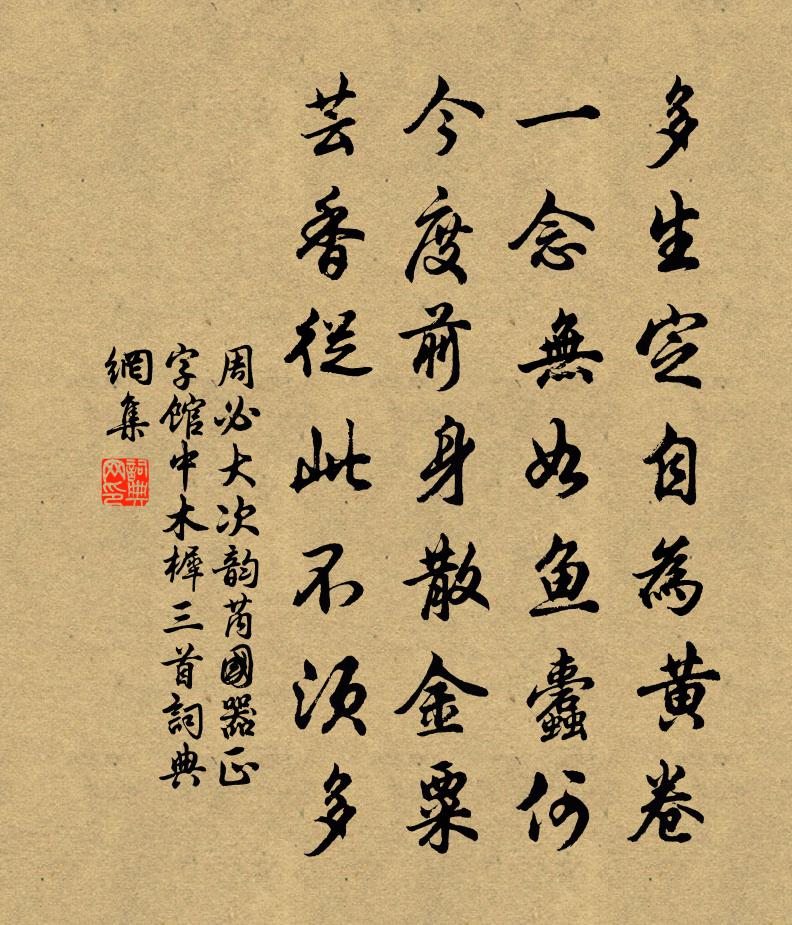 多生定自為黃卷
一念無如魚蠹何
今度前身散金粟
芸香從此不須多
周必大次韵芮國器正
字館中木樨三首詞典
網集
詞典網印